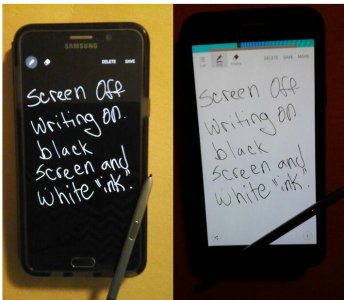 SAMSUNG
DELETE SAVE
Screen Off
writing on
black
screen and
white "ink".
DELETE SAVE MORE
Screen Off
writing on
black
screen and
white "ink".